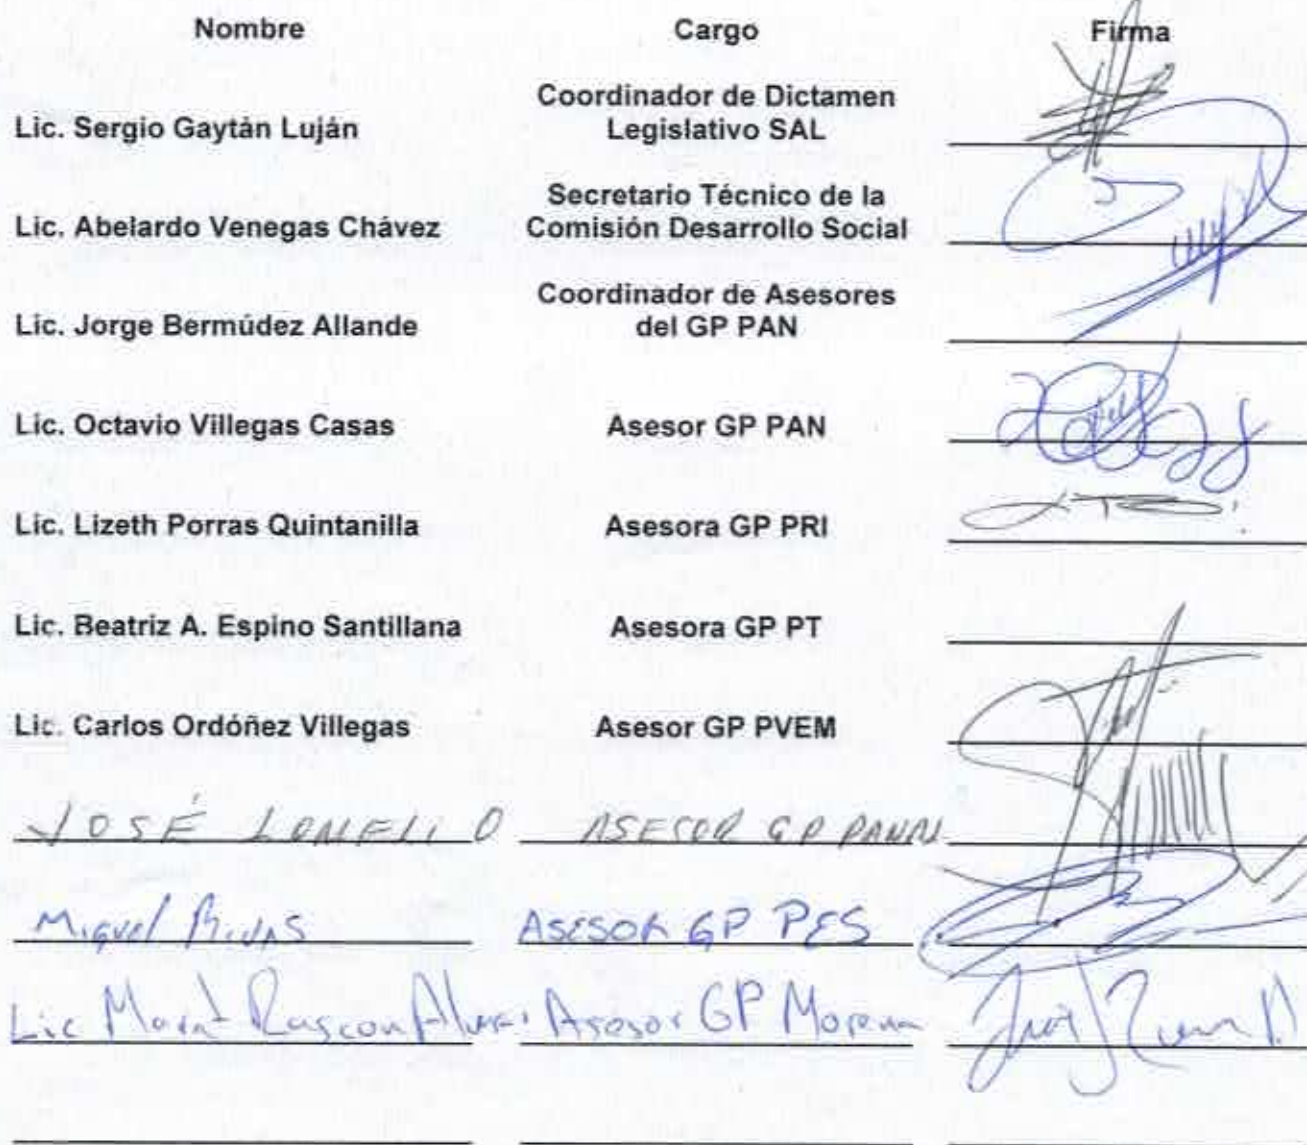 Nombre Cargo Firma
Lic. Sergio Gaytàn Luján Coordinador de Dictamen
Legislativo SAL
Lic. Abelardo Venegas Chávez Secretario Técnico de la
Comisión Desarrollo Social
Lic. Jorge Bermúdez Allande Coordinador de Asesores
del GP PAN
Lic. Octavio Villegas Casas Asesor GP PAN
Lic. Lizeth Porras Quintanilla Asesora GP PRI
Lic. Beatriz A. Espino Santillana Asesora GP PT
Lic. Carlos Ordóñez Villegas Asesor GP PVEM
JOSÉ LOMELI O ASESOR GP PANAL
Miguel Rivas ASESOR GP PES
Lic Rascon Asesor GP Morena